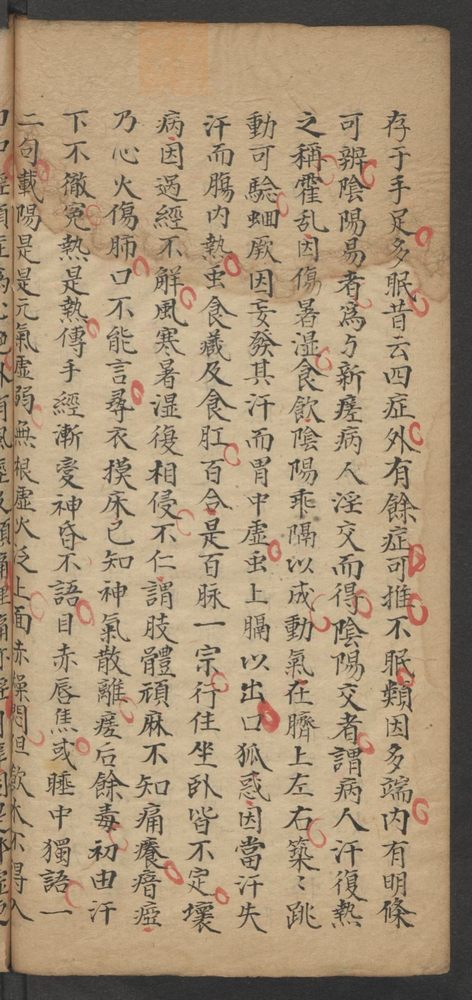 存于手足多眠昔云四症外有餘症可推不眠類因多端内有明條
可辨陰陽易者爲与新瘥病人淫交而得陰陽交者謂病人汗復熱
之稱霍乱因傷暑湿食飲陰陽乖隔以成動氣在臍上左右築〻跳
動可驗蛔厥因妄發其汗而胃中虛虫上膈以出口狐惑因當汗失
汗而膓内熱虫食臟及食肛百合是百脉一宗行住坐卧皆不定壞
病因過經不解風寒暑湿復相侵不仁謂肢體頑麻不知痛癢瘖瘂
乃心火傷肺口不能言尋衣摸床已知神氣散離瘥后餘毒初由汗
下不徹寃熱是熱傳手經漸變神昏不語目赤唇焦或睡中獨語一
二句載陽是是元氣虛弱無根虛火泛上面赤燥悶但飲水不得入